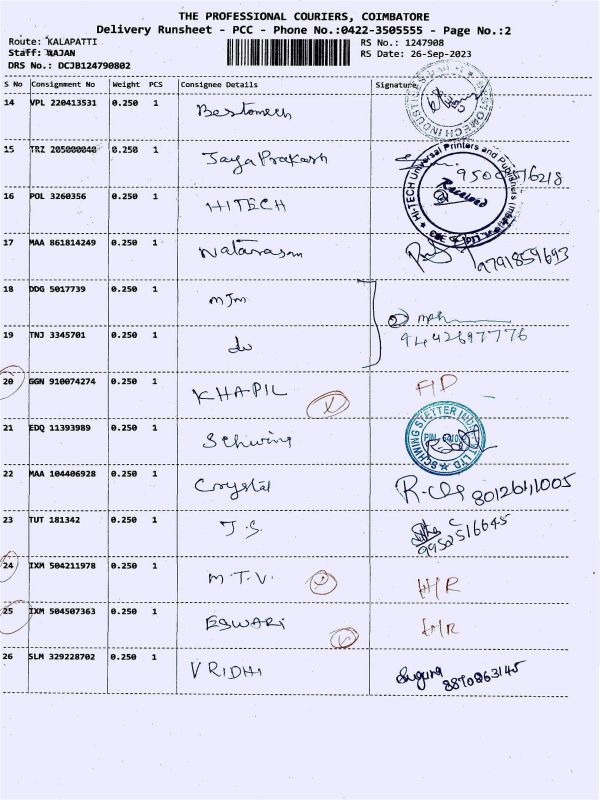 THE PROFESSIONAL COURIERS, COIMBATORE
Delivery Runsheet - PCC - Phone No.:0422-3505555 - Page No.:2
Route: KALAPATTI RS No.: 1247908
Staff: RAJAN RS Date: 26-Sep-2023
DRS No.: DCJB124790802
S No Consignment No Weight PCS Consignee Details Signature
14 VPL 220413531 0.250 1 Bestomech
15 TRZ 205000040 0.250 1 JayaPrakash
16 POL 3260356 0.250 1 HITECH
HI-TECH Universal Printers and Publishers
Received
17 MAA 861814249 0.250 1 Natarasan 9791859693
18 DDG 5017739 0.250 1 MJM
19 TNJ 3345701 0.250 1 do 9442697776
20 GGN 910074274 0.250 1 KHAPIL F/D
21 EDQ 11393989 0.250 1 Schwing
SCHWING STETTER
22 MAA 104406928 0.250 1 Crystal
23 TUT 181342 0.250 1 J.S 9952516645
24 IXM 504211978 0.250 1 M.T.V. H/R
25 IXM 504507363 0.250 1 ESWARI H/R
26 SLM 329228702 0.250 1 VRIDHI Suguna 8870863145